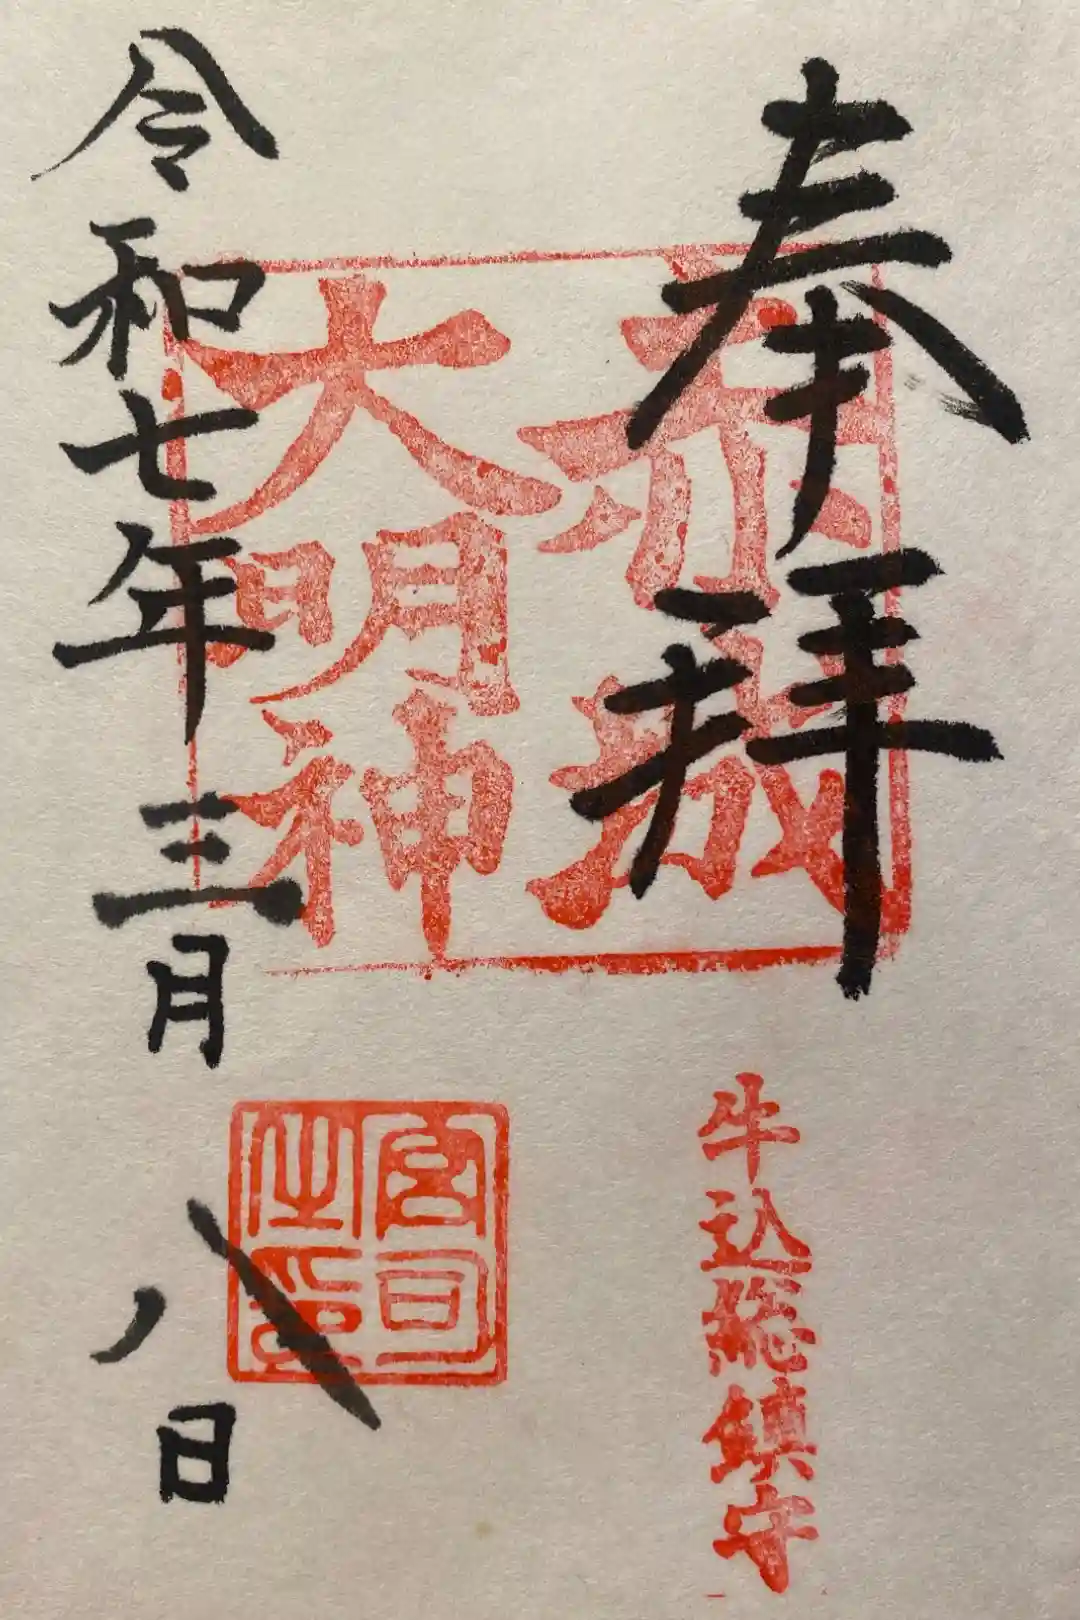 奉拝
赤城
大明神
牛込総鎮守
宮司之印
令和七年三月八日